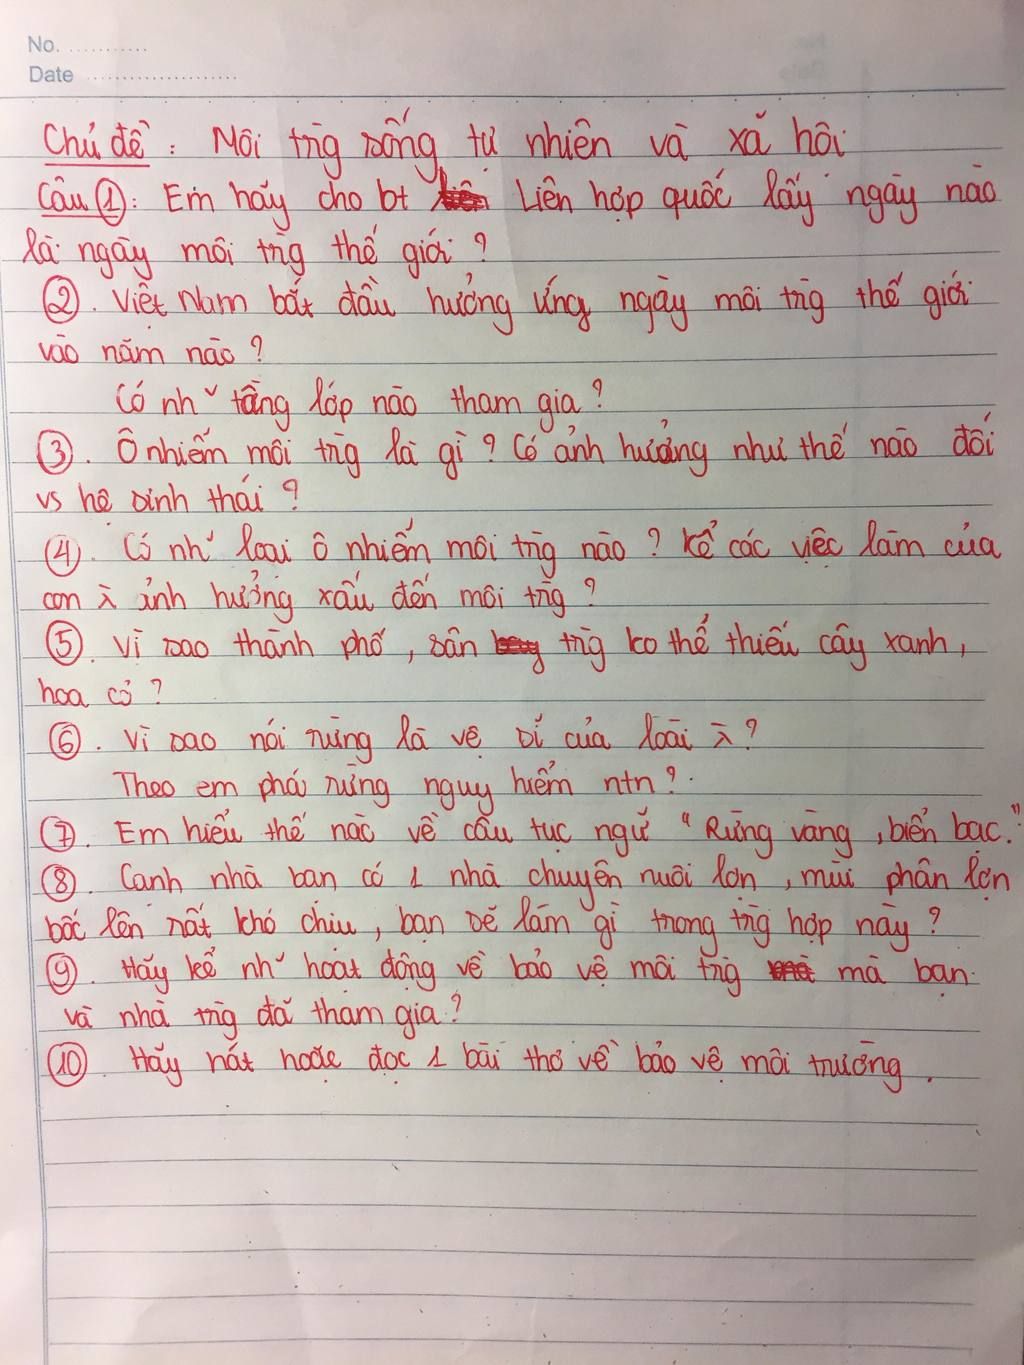 No. ............
Date ......................
Chủ đề : Môi trg sống tự nhiên và xã hội
Câu ①: Em hãy cho bt Liên hợp quốc lấy ngày nào
là ngày môi trg thế giới ?
②. Việt Nam bắt đầu hưởng ứng ngày môi trg thế giới
vào năm nào ?
Có nh~ tầng lớp nào tham gia ?
③. Ô nhiễm môi trg là gì ? Có ảnh hưởng như thế nào đối
vs hệ sinh thái ?
④. Có nh~ loại ô nhiễm môi trg nào ? Kể các việc làm của
con λ ảnh hưởng xấu đến môi trg ?
⑤. Vì sao thành phố, sân trg ko thể thiếu cây xanh,
hoa cỏ ?
⑥. Vì sao nói rừng là vệ sĩ của loài λ ?
Theo em phá rừng nguy hiểm ntn ?
⑦. Em hiểu thế nào về câu tục ngữ "Rừng vàng, biển bạc."
⑧. Cạnh nhà bạn có 1 nhà chuyên nuôi lợn, mùi phân lợn
bốc lên rất khó chịu, bạn sẽ làm gì trong trg hợp này ?
⑨. Hãy kể nh~ hoạt động về bảo vệ môi trg mà bạn
và nhà trg đã tham gia ?
⑩. Hãy hát hoặc đọc 1 bài thơ về bảo vệ môi trường.